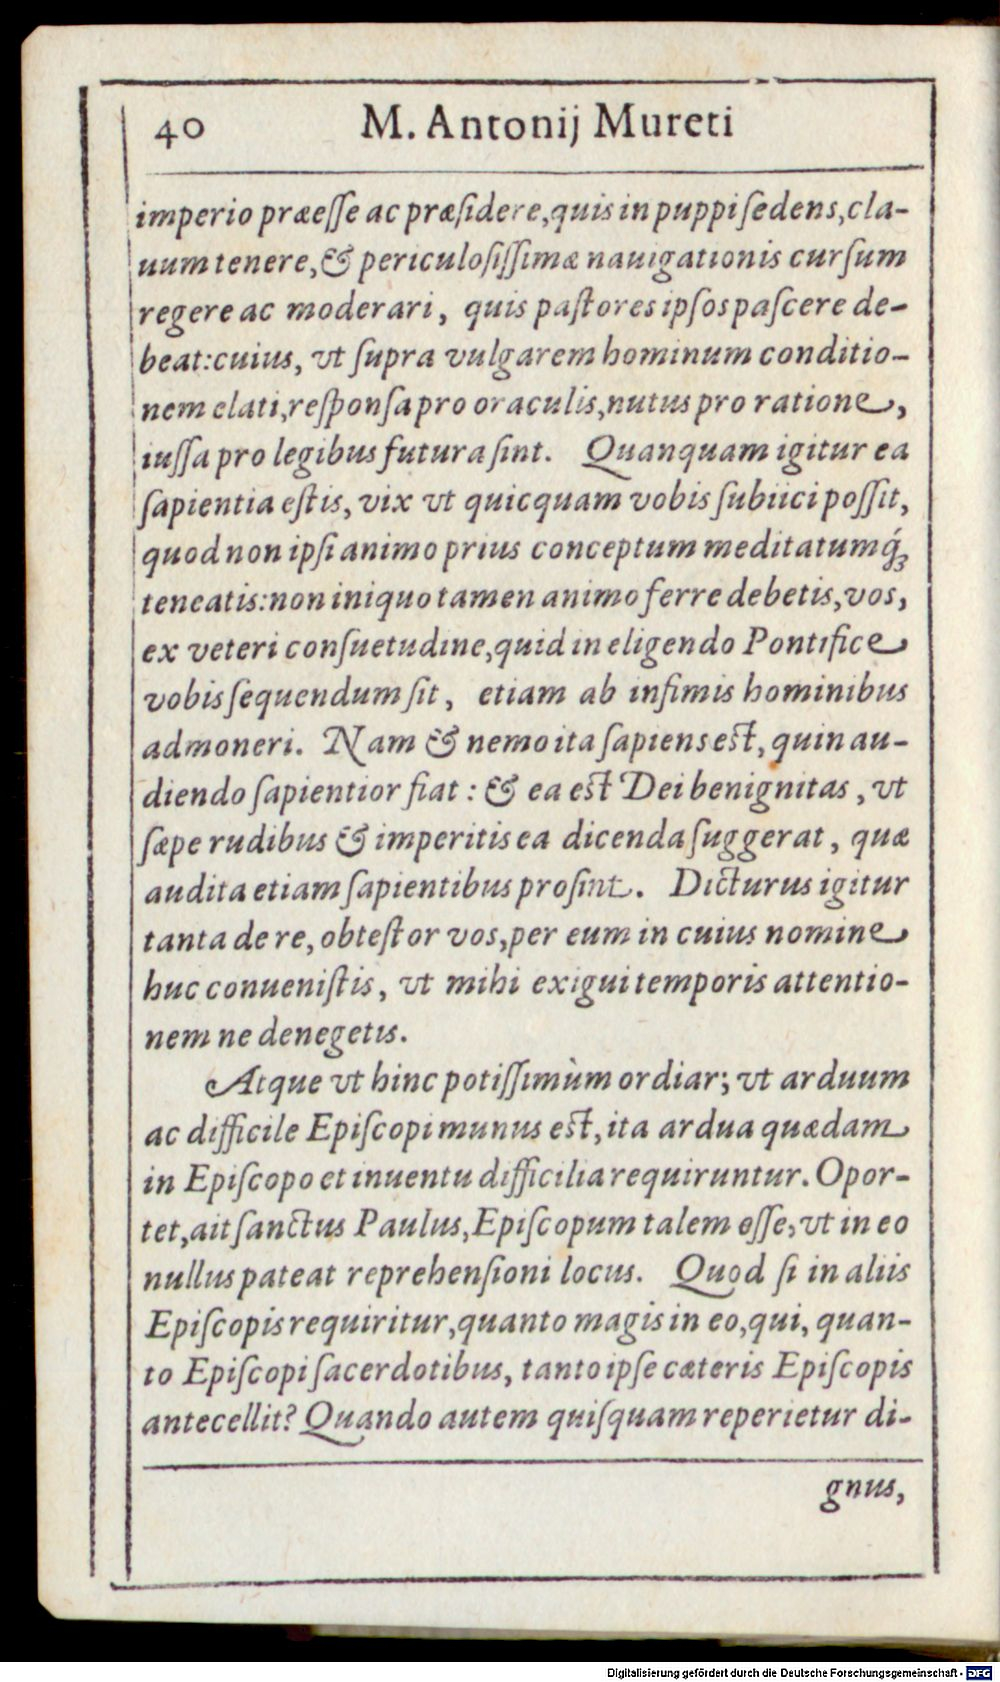 40 M. Antonij Mureti
imperio præeſſe ac præſidere, quis in puppi ſedens, cla-
uum tenere, & periculoſiſſimæ nauigationis curſum
regere ac moderari, quis paſtores ipſos paſcere de-
beat: cuius, vt ſupra vulgarem hominum conditio-
nem elati, reſponſa pro oraculis, nutus pro ratione,
iuſſa pro legibus futura ſint. Quanquam igitur ea
ſapientia eſtis, vix vt quicquam vobis ſubiici poſſit,
quod non ipſi animo prius conceptum meditatumq́;
teneatis: non iniquo tamen animo ferre debetis, vos,
ex veteri conſuetudine, quid in eligendo Pontifice
vobis ſequendum ſit, etiam ab infimis hominibus
admoneri. Nam & nemo ita ſapiens eſt, quin au-
diendo ſapientior fiat: & ea eſt Dei benignitas, vt
ſæpe rudibus & imperitis ea dicenda ſuggerat, quæ
audita etiam ſapientibus proſint. Dicturus igitur
tanta de re, obteſtor vos, per eum in cuius nomine
huc conueniſtis, vt mihi exigui temporis attentio-
nem ne denegetis.
Atque vt hinc potiſſimùm ordiar; vt arduum
ac difficile Epiſcopi munus eſt, ita ardua quædam
in Epiſcopo et inuentu difficilia requiruntur. Opor-
tet, ait ſanctus Paulus, Epiſcopum talem eſſe, vt in eo
nullus pateat reprehenſioni locus. Quod ſi in aliis
Epiſcopis requiritur, quanto magis in eo, qui, quan-
to Epiſcopi ſacerdotibus, tanto ipſe cæteris Epiſcopis
antecellit? Quando autem quiſquam reperietur di-
gnus,
Digitalisierung gefördert durch die Deutsche Forschungsgemeinschaft - DFG